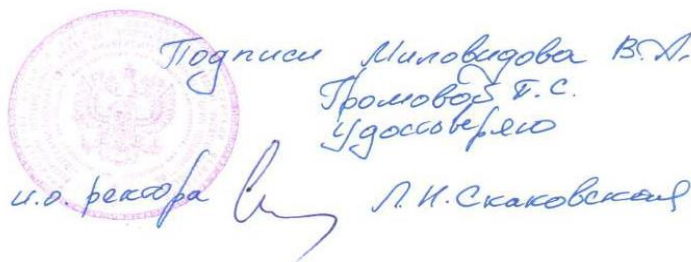 Подписи Миловидова В.А.
Громовой Т.С.
удостоверяю
и.о. ректора Л.Н.Скаковская